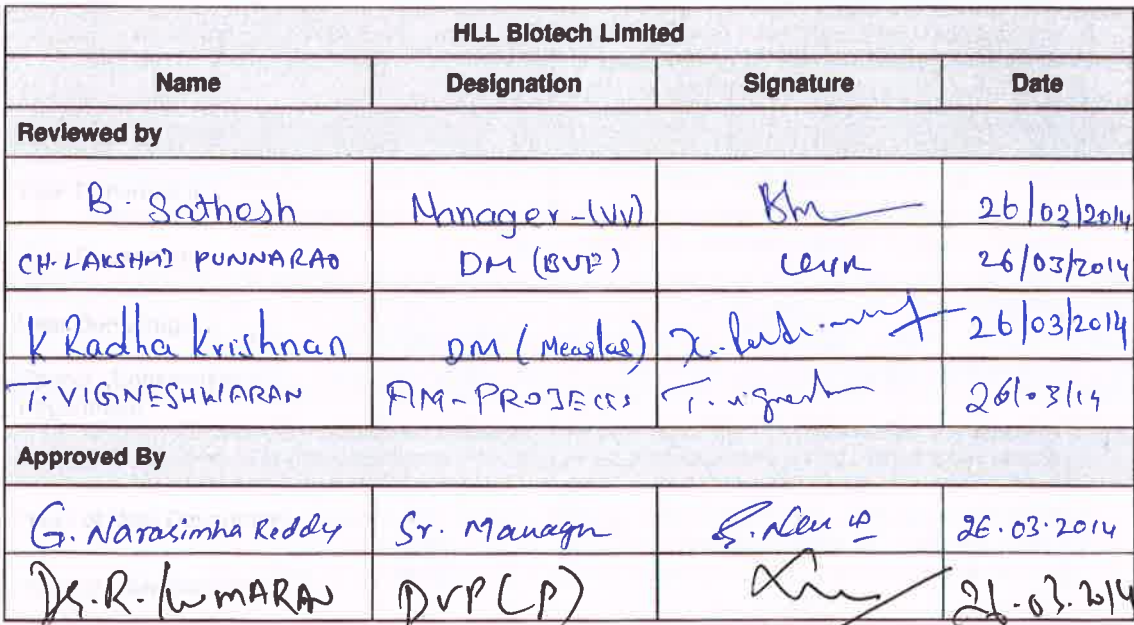 HLL Biotech Limited
Name Designation Signature Date
Reviewed by
B. Sathesh Manager-(VV) 26/03/2014
CH. LAKSHMI PUNNARAO DM (BVP) 26/03/2014
K Radha Krishnan DM (Measles) 26/03/2014
T. VIGNESHWARAN AM-PROJECTS T. Vignesh 26/03/14
Approved By
G. Narasimha Reddy Sr. Manager 26.03.2014
Dr. R. KUMARAN DVP (P) .03.2014